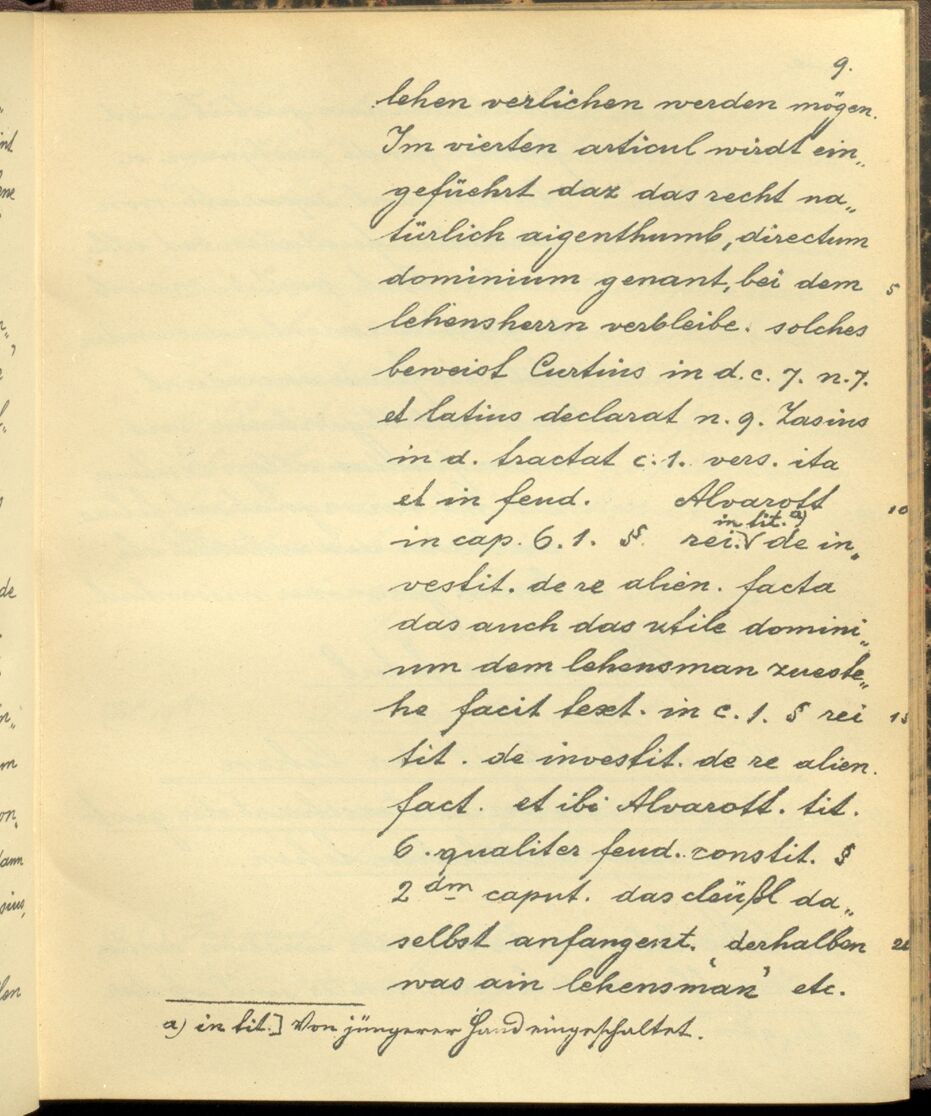 9.
lehen verlichen werden mögen.
Im vierten articul wirdt ein„
gefüehrt daz das recht na„
türlich aigenthumb, directum
dominium genant, bei dem 5
lehensherrn verbleibe. solches
beweist Curtius in d. c. 7. n. 7.
et latius declarat n. 9. Zasius
in d. tractat c. 1. vers. ita
et in feud. Alvarott 10
in tit. a)
in cap. 6. 1. §. rei. √ de in„
vestit. de re alien. facta
das auch das utile domini„
um dem lehensman zueste„
he facit text. in c. 1. § rei 15
tit. de investit. de re alien.
fact. et ibi Alvarott. tit.
6. qualiter feud. constit. §
2 dm caput. das cleüßl da„
selbst anfangent. derhalben 20
was ain lehensman etc.
a) in tit.] Von jüngerer Hand eingeschaltet.